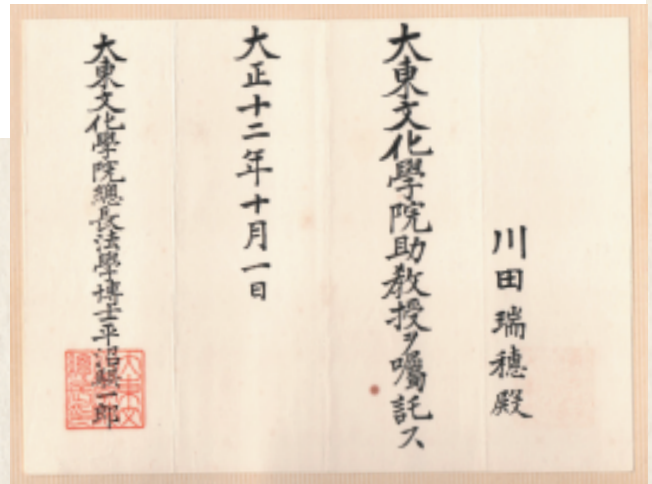 川田瑞穗殿
大東文化學院助教授ヲ囑託ス
大正十二年十月一日
大東文化學院總長法學博士平沼騏一郎